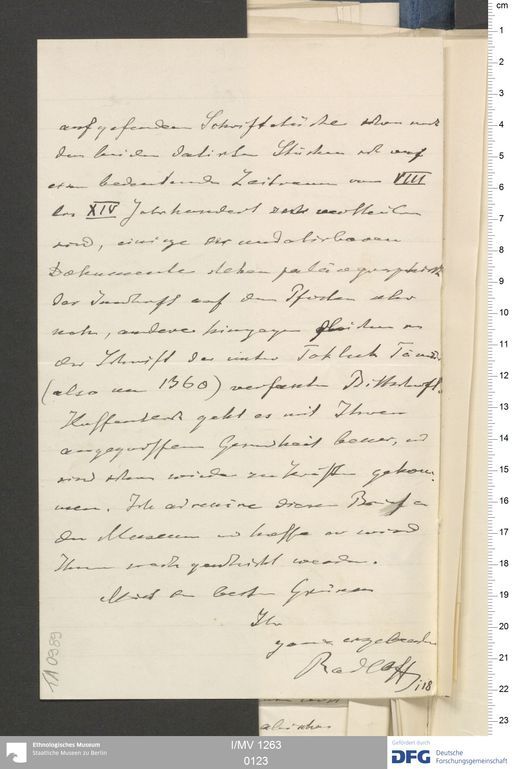 aufgefundenen Schriftstücke schon nach
den beiden datirten Stücken sich auf
einen bedeutenden Zeitraum vom VIII
bis XIV Jahrhundert vertheilen
wird, einige der undatirbaren
Dokumente stehen paläographisch
der Inschrift auf den Pfosten sehr
nahe, andere hingegen gleichen
der Schrift der unter Tohluk Timur
(also um 1360) verfassten Bittschrift.
Hoffentlich geht es mit Ihrer
angegriffenen Gesundheit besser,
sind schon wieder zu Kräften gekom-
men. Ich adressire diesen Brief an
das Museum u hoffe er wird
Ihnen nachgeschickt werden.
Mit den besten Grüssen
Ihr
ganz ergebenster
Radloff
TA 0989
cm
1
2
3
4
5
6
7
8
9
10
11
12
13
14
15
16
17
18
19
20
21
22
23
Ethnologisches Museum
Staatliche Museen zu Berlin
I/MV 1263
0123
Gefördert durch
DFG Deutsche
Forschungsgemeinschaft